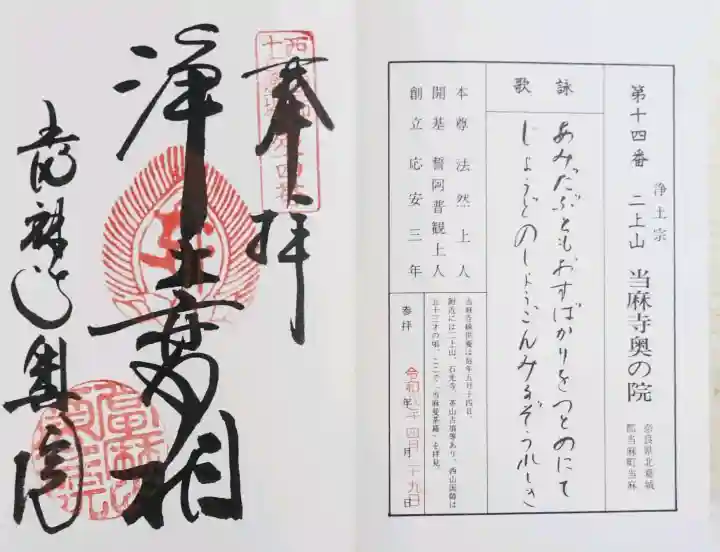 第十四番 浄土宗 二上山 当麻寺奥の院
奈良県北葛城
郡当麻町当麻
詠歌
あみだぶともおすばかりをつとめにて
じょうどのしょうごんみるぞうれしき
本尊 法然上人
開基 誓阿普観上人
創立 応安三年
当麻寺練供養は毎年五月十四日。
附近には二上山、石光寺、茶山古墳等あり、西山国師は
五十三才の頃、ここで「当麻曼荼羅」を拝見。
参拝 令和 年 四月 二十九日
奉拝
浄土変相